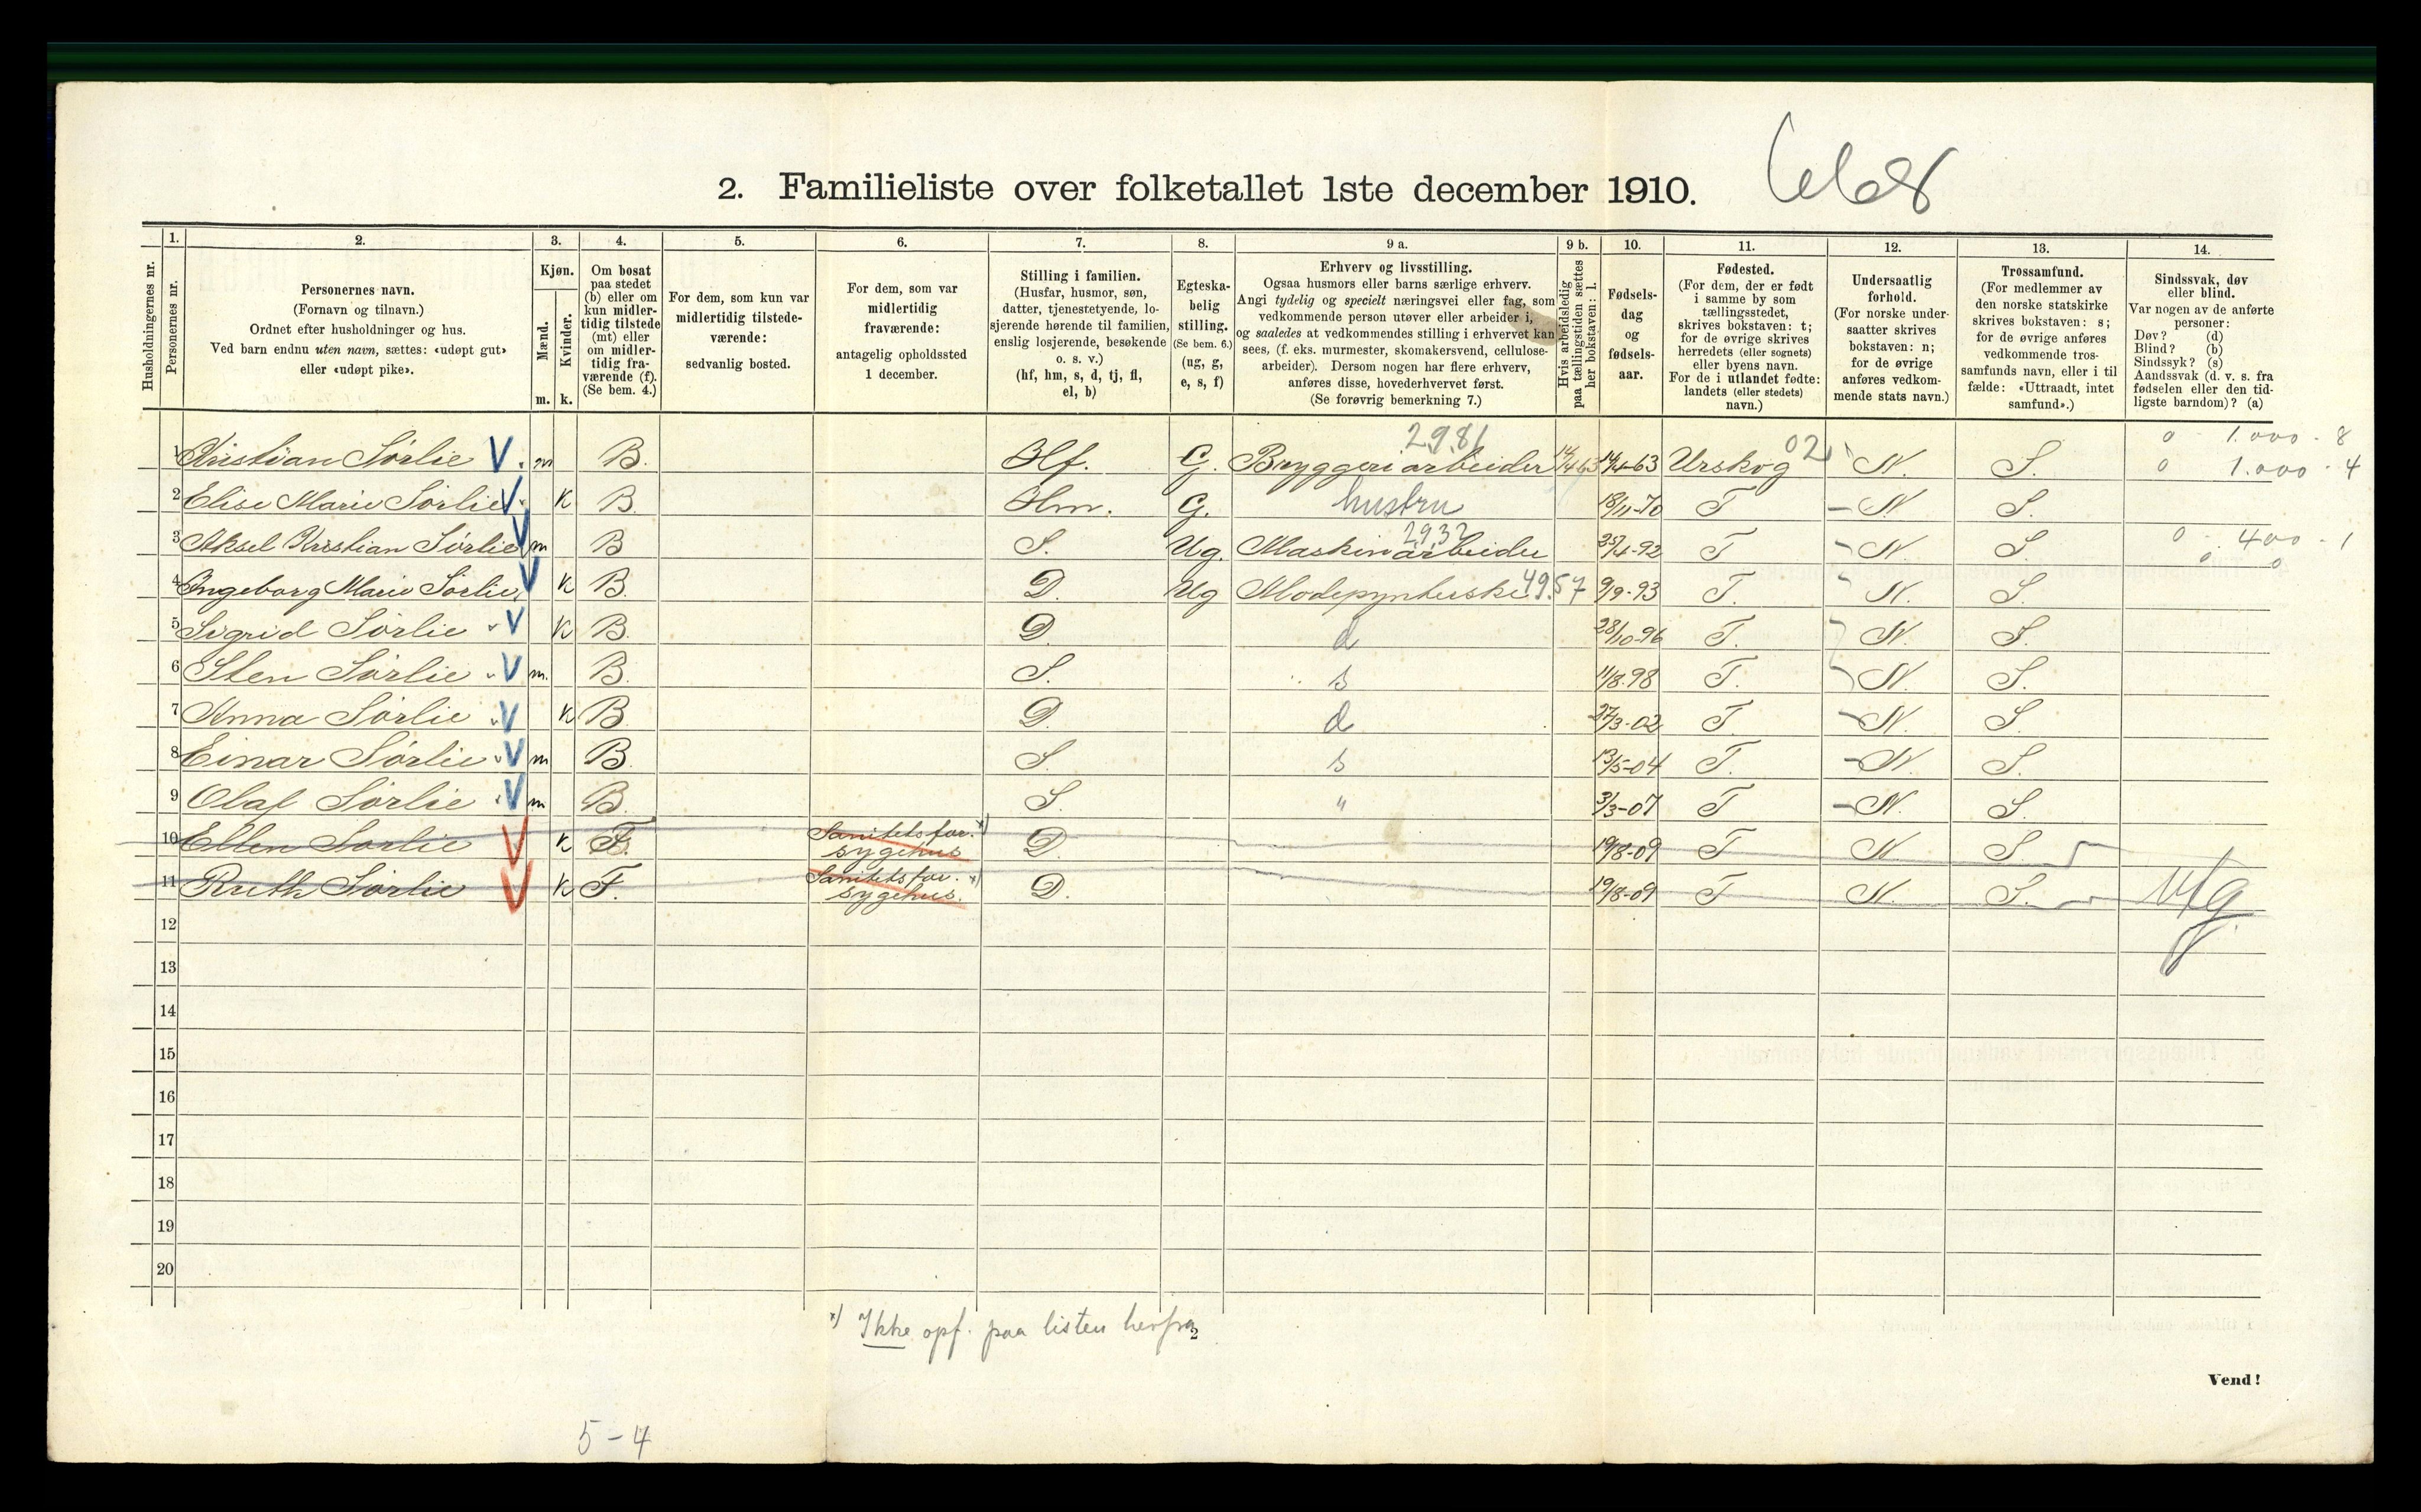 2. Familieliste over folketallet 1ste december 1910.
Husholdningernes nr.
1.
Personernes nr.
2.
Personernes navn.
(Fornavn og tilnavn.)
Ordnet efter husholdninger og hus.
Ved barn endnu uten navn, sættes: «udøpt gut»
eller «udøpt pike».
3.
Kjøn.
Mænd.
Kvinder.
m. k.
4.
Om bosat
paa stedet
(b) eller om
kun midler-
tidig tilstede
(mt) eller
om midler-
tidig fra-
værende (f).
(Se bem. 4.)
5.
For dem, som kun var
midlertidig tilstede-
værende:
sedvanlig bosted.
6.
For dem, som var
midlertidig
fraværende:
antagelig opholdssted
1 december.
7.
Stilling i familien.
(Husfar, husmor, søn,
datter, tjenestetyende, lo-
sjerende hørende til familien,
enslig losjerende, besøkende
o. s. v.)
(hf, hm, s, d, tj, fl,
el, b)
8.
Egteska-
belig
stilling.
(Se bem. 6.)
(ug, g,
e, s, f)
9 a.
Erhverv og livsstilling.
Ogsaa husmors eller barns særlige erhverv.
Angi tydelig og specielt næringsvei eller fag, som
vedkommende person utøver eller arbeider i,
og saaledes at vedkommendes stilling i erhvervet kan
sees, (f. eks. murmester, skomakersvend, cellulose-
arbeider). Dersom nogen har flere erhverv,
anføres disse, hovederhvervet først.
(Se forøvrig bemerkning 7.)
9 b.
Hvis arbeidsledig
paa tællingstiden sættes
her bokstaven: l.
10.
Fødsels-
dag
og
fødsels-
aar.
11.
Fødested.
(For dem, der er født
i samme by som
tællingsstedet,
skrives bokstaven: t;
for de øvrige skrives
herredets (eller sognets)
eller byens navn.
For de i utlandet fødte:
landets (eller stedets)
navn.)
12.
Undersaatlig
forhold.
(For norske under-
saatter skrives
bokstaven: n;
for de øvrige
anføres vedkom-
mende stats navn.)
13.
Trossamfund.
(For medlemmer av
den norske statskirke
skrives bokstaven: s;
for de øvrige anføres
vedkommende tros-
samfunds navn, eller i til
fælde: «Uttraadt, intet
samfund».)
14.
Sindssvak, døv
eller blind.
Var nogen av de anførte
personer:
Døv? (d)
Blind? (b)
Sindssyk? (s)
Aandssvak (d. v. s. fra
fødselen eller den tid-
ligste barndom)? (a)
2981 02 0 1.000 - 8
1 Kristian Sørlie V. m B. Hf. G. Bryggeriarbeider 14/4 63 14/4-63 Urskog N. S. 0 1.000 - 4
2 Elise Marie Sørlie V. K B. Hm. G. hustru 18/11-70 T N S.
2932
3 Aksel Kristian Sørlie V m B S. Ug. Maskinarbeider 25/4-92 T N. S. 0 - 400 - 1
0 0
4 Ingeborg Marie Sørlie V K B. D. Ug Modepynterske 4957 9/9-93 T. N. S.
5 Sigrid Sørlie V K B. D. d 28/10-96 T. N. S.
6 Sten Sørlie V m. B. S. s 11/8.98 T. N. S.
7 Anna Sørlie V K B. D. d 27/3-02 T. N. S.
8 Einar Sørlie V m B. S. s 13/5-04 T. N. S.
9 Olaf Sørlie V m B. S. " 3/3-07 T N. S.
10 Ellen Sørlie V K F. Sanitetsfor. sygehus x) D. 19/8-09 T N S
11 Ruth Sørlie V K F. Sanitetsfor. sygehus. x) D. 19/8-09 T N. S.
12
13
14
15
16
17
18
19
20
x) Ikke opf. paa listen herfra
2
Vend!
5-4